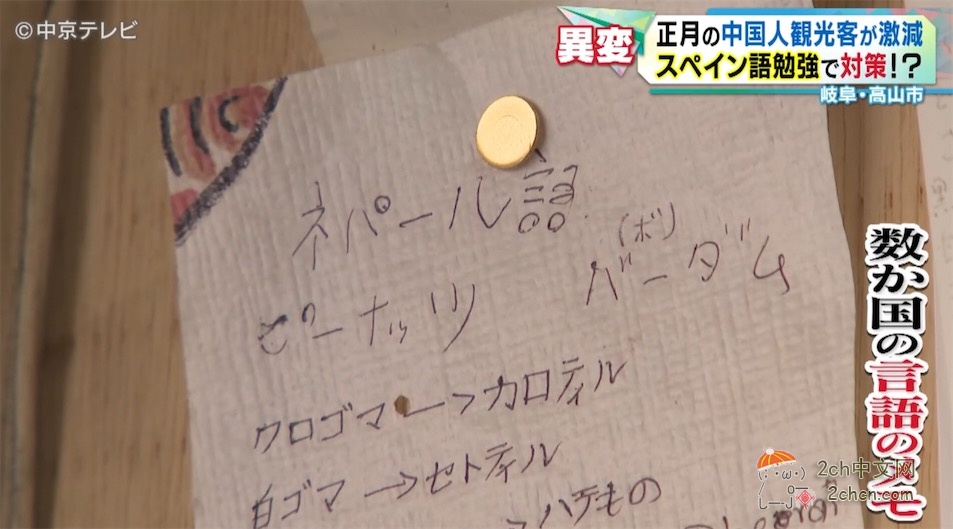 ©中京テレビ
異変
正月の中国人観光客が激減
スペイン語勉強で対策!?
岐阜・高山市
ネパール語
(ボリ)
ピーナッツ
バーダム
クロゴマ→カロティル
白ゴマ→セトティル
数か国の言語のメモ
2ch中文网
2chcn.com